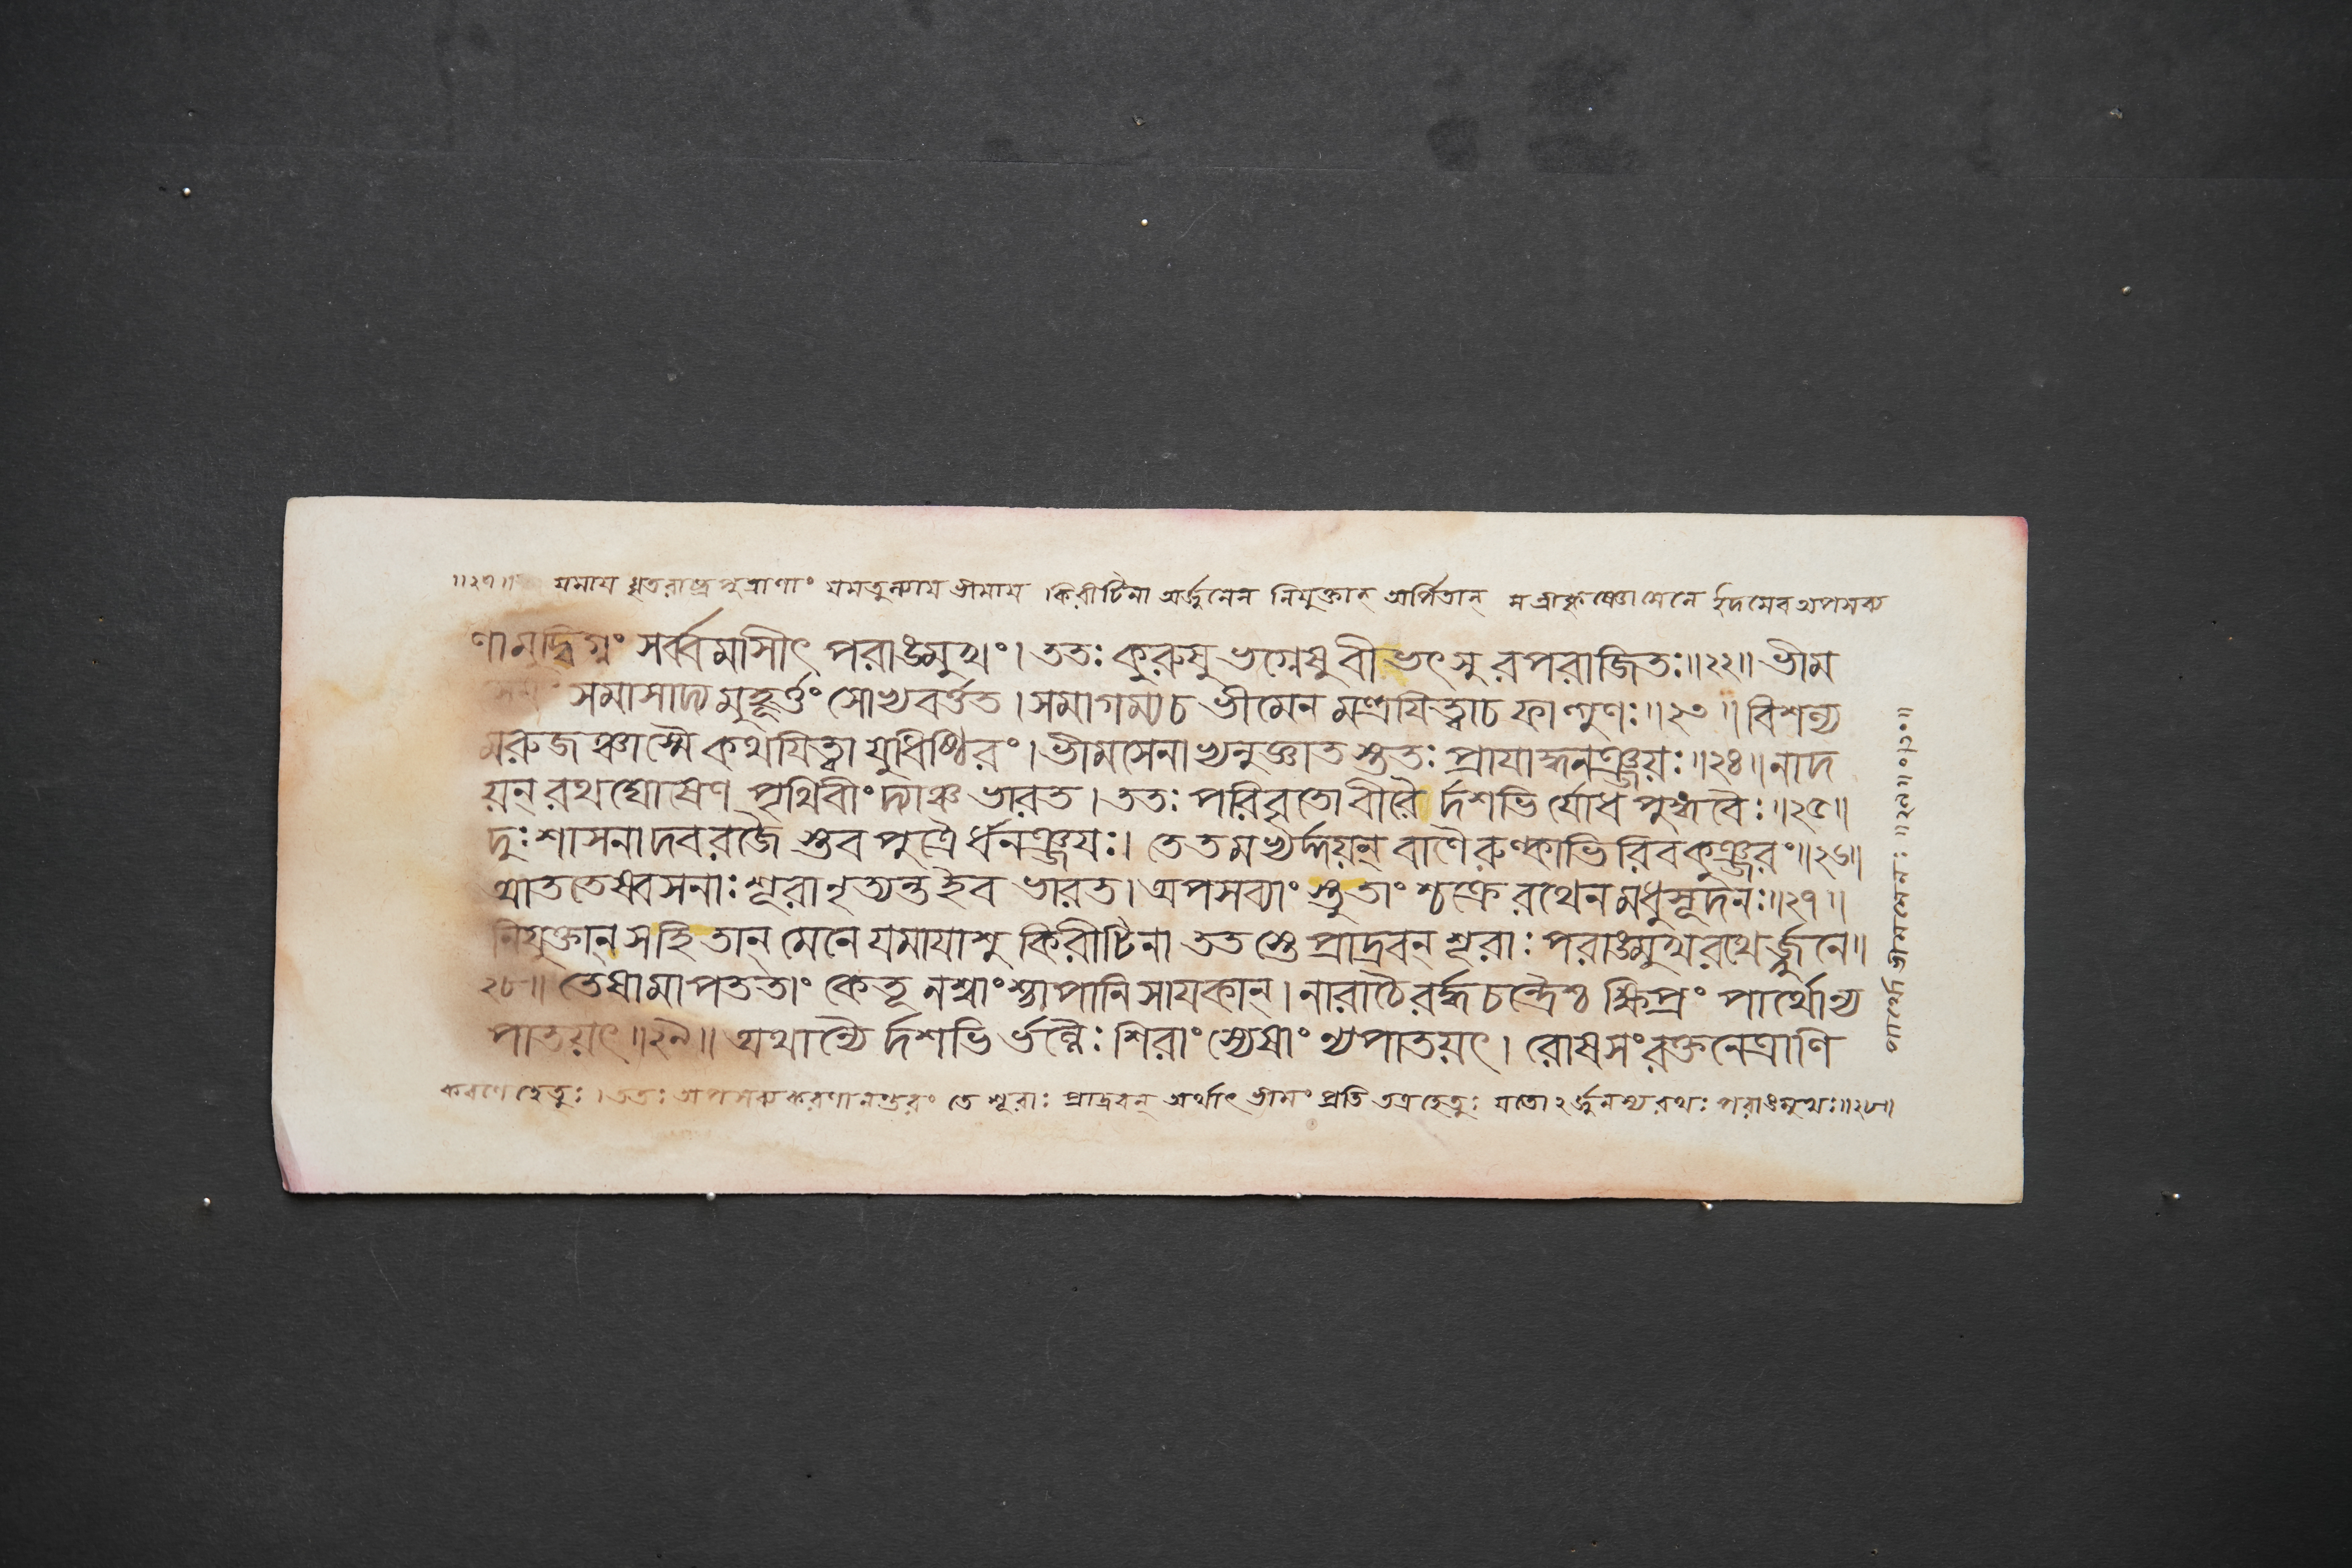 ॥২৭॥ যমায ধৃতরাষ্ট্রপুত্রাণাং যমতুল্যায ভীমায ।কিরীটিনা অর্জ্জুনেন নিযুক্তান্ অর্পিতান্ স শ্রীকৃষ্ণো মেনে ইদমেব অপসব্য
ণামুদ্বিগ্নং সর্ব্বমাসীৎ পরাঙ্মুখং। ততঃ কুরুষু ভগ্নেষু বীভৎসু রপরাজিতঃ॥২২॥ ভীম
সেনং সমাসাদ্য মুহূর্ত্তং সোভ্যবর্ত্তত। সমাগম্যচ ভীমেন মন্ত্রযিত্বাচ ফাল্গুণঃ॥২৩॥ বিশল্য
মরুজঞ্চাস্মৈ কথযিত্বা যুধিষ্ঠিরং। ভীমসেনাভ্যনুজ্ঞাত স্ততঃ প্রাযাদ্ধনঞ্জয়ঃ॥২৪॥ নাদ
য়ন্ রথঘোষেণ পৃথিবীং দ্যাঞ্চ ভারত। ততঃ পরিবৃতো বীরৈ র্দশভি র্যোধ পুঙ্গবৈঃ॥২৫॥
দুঃশাসনাদবরজৈ স্তব পুত্রৈ র্ধনঞ্জযঃ। তে তমভ্যর্দ্দয়ন্ বাণৈরুল্কাভিরিবকুঞ্জরং॥২৬॥
আততেষ্বসনাঃ শূরা নৃত্যন্ত ইব ভারত। অপসব্যাং স্তুতাং শ্চক্রে রথেন মধুসূদনঃ॥২৭॥
নিযুক্তান্ সহি তান্ মেনে যমাযাশু কিরীটিনা ততস্তে প্রাদ্রবন্ শূরাঃ পরাঙ্মুখরথের্জ্জুনে॥
২৮॥ তেষামাপততাং কেতূ নশ্বাংশ্চাপানি সাযকান্। নারাচৈরর্দ্ধচন্দ্রৈশ্চ ক্ষিপ্রং পার্থোন্য
পাতয়ৎ॥২৯॥ অথান্যৈ র্দশভি র্ভল্লৈঃ শিরাংস্যেষাং ন্যপাতয়ৎ। রোষসংরক্তনেত্রাণি
করণে হেতুঃ।ততঃ অপসব্যকরণানন্তরং তে শূরাঃ প্রাদ্রবন্ অর্থাৎ ভীমং প্রতি তত্রহেতুঃ যতো ঽর্জ্জুনস্য রথঃ পরাঙ্মুখঃ॥২৮॥